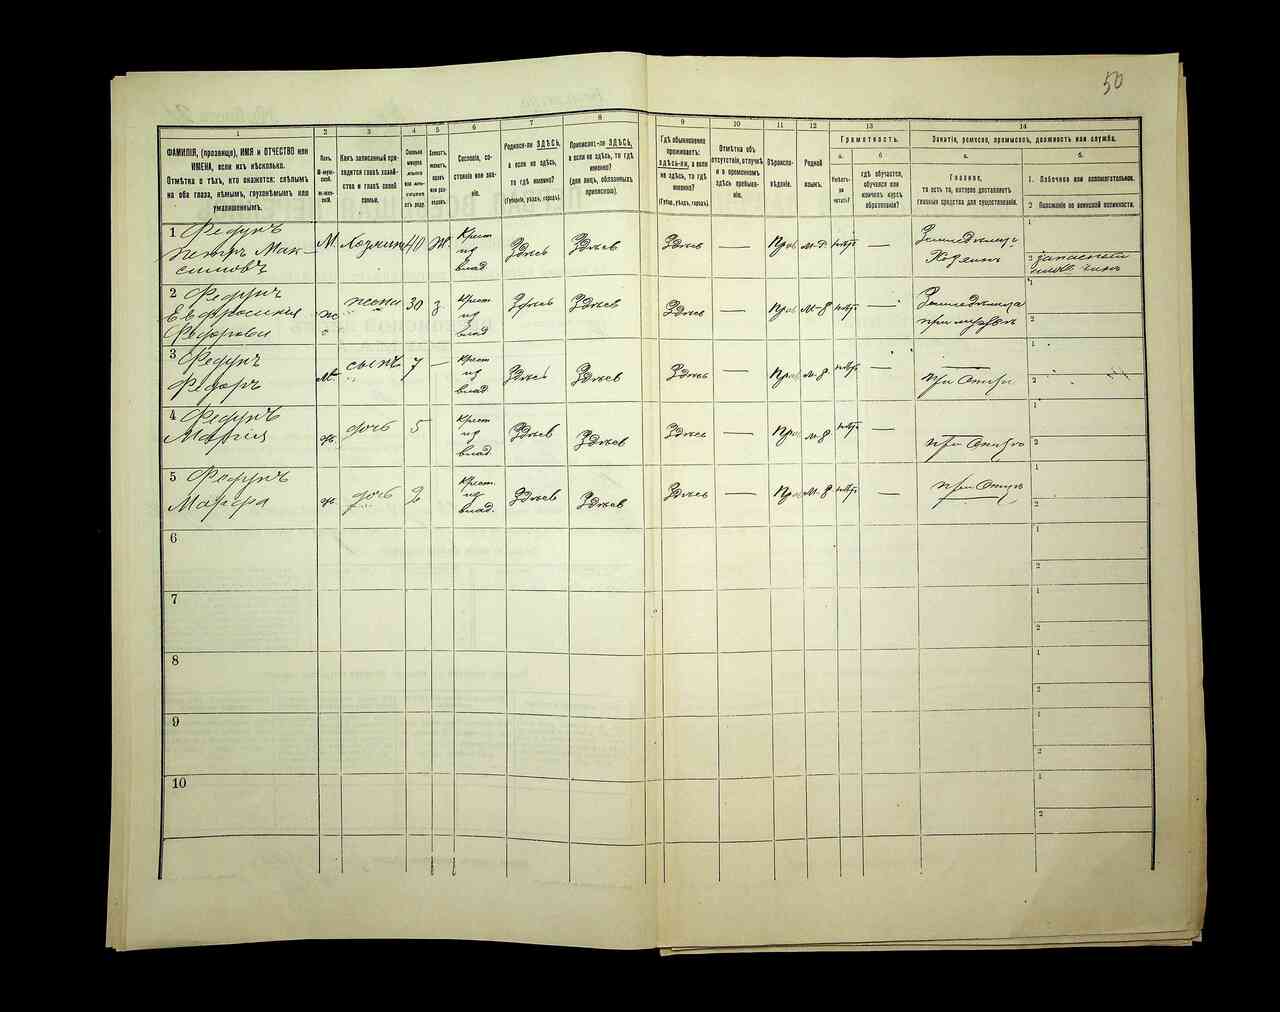 50
1
2
3
4
5
6
7
8
9
10
11
12
13
14
ФАМИЛІЯ, (прозвище), ИМЯ и ОТЧЕСТВО или
ИМЕНА, если ихъ нѣсколько.
Отмѣтка о тѣхъ, кто окажется: слѣпымъ
на оба глаза, нѣмымъ, глухонѣмымъ или
умалишеннымъ.
Полъ.
М-мужской.
Ж-женскій.
Какъ записанный приходится
главѣ хозяйства
и главѣ своей
семьи.
Сколько
минуло
лѣтъ
или мѣсяцевъ
отъ роду.
Холостъ,
женатъ,
вдовъ
или разведенъ.
Сословіе, состояніе
или званіе.
Родился-ли ЗДѢСЬ,
а если не здѣсь,
то гдѣ именно?
(Губернія, уѣздъ, городъ).
Приписанъ-ли ЗДѢСЬ,
а если не здѣсь, то гдѣ
именно?
(для лицъ, обязанныхъ
припискою).
Гдѣ обыкновенно
проживаетъ:
ЗДѢСЬ-ли, а если
не здѣсь, то гдѣ
именно?
(Губер., уѣздъ, городъ).
Отмѣтка объ
отсутствіи, отлучкѣ
и о временномъ
здѣсь пребываніи.
Вѣроисповѣданіе.
Родной
языкъ.
Грамотность.
а.
Умѣетъ-ли
читать?
б
гдѣ обучается,
обучался или
кончилъ курсъ
образованія?
Занятіе, ремесло, промыселъ, должность или служба.
а.
Главное,
то есть то, которое доставляетъ
главныя средства для существованія.
б.
1. Побочное или вспомогательное.
2 Положеніе по воинской повинности.
1 Федунъ
Петръ Максимовъ
М. Хозяинъ 40 Ж. Крест из влад. Здѣсь Здѣсь Здѣсь — Прав м-р нѣтъ — Земледѣлецъ Хозяинъ
1
2 запасный
нижн. чинъ
2 Федунъ
Евфросинія
Федорова
ж жена 30 з Крест из влад Здѣсь Здѣсь Здѣсь — Прав м-р нѣтъ — Земледѣлица при мужѣ
1
2
3 Федунъ
Федоръ
м. сынъ 7 — Крест из влад Здѣсь Здѣсь Здѣсь — Прав м-р. нѣтъ — при отцѣ
1
2
4 Федунъ
Марія
ж. дочь 5 Крест из влад. Здѣсь Здѣсь Здѣсь — Прав м-р нѣтъ — при отцѣ
1
2
5 Федунъ
ж. дочь 2 Крест. из влад. Здѣсь Здѣсь Здѣсь — Прав м-р нѣтъ — при отцѣ
1
2
6
1
2
7
1
2
8
1
2
9
1
2
10
1
2